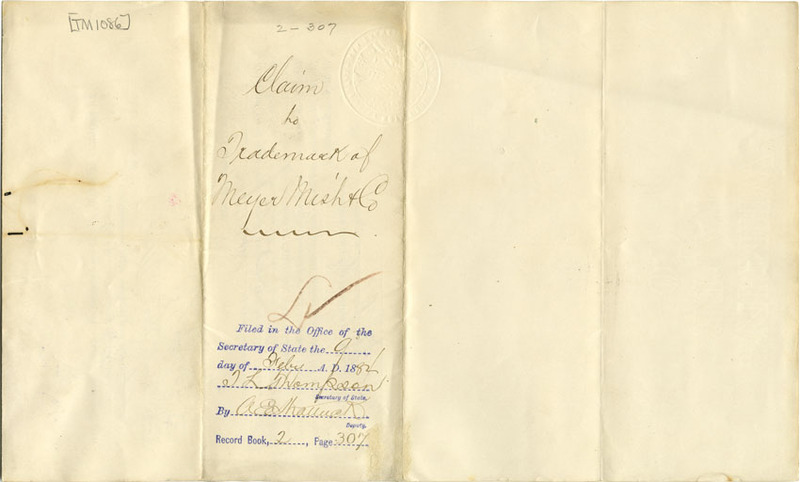 [TM1086]
2-307
Claim
to
Trademark of
Meyer Mish & Co
Filed in the Office of the
Secretary of State the 9
day of Feby A. D. 188
T L Thompson
Secretary of State.
By A. B.
Deputy.
Record Book, 2, Page 307